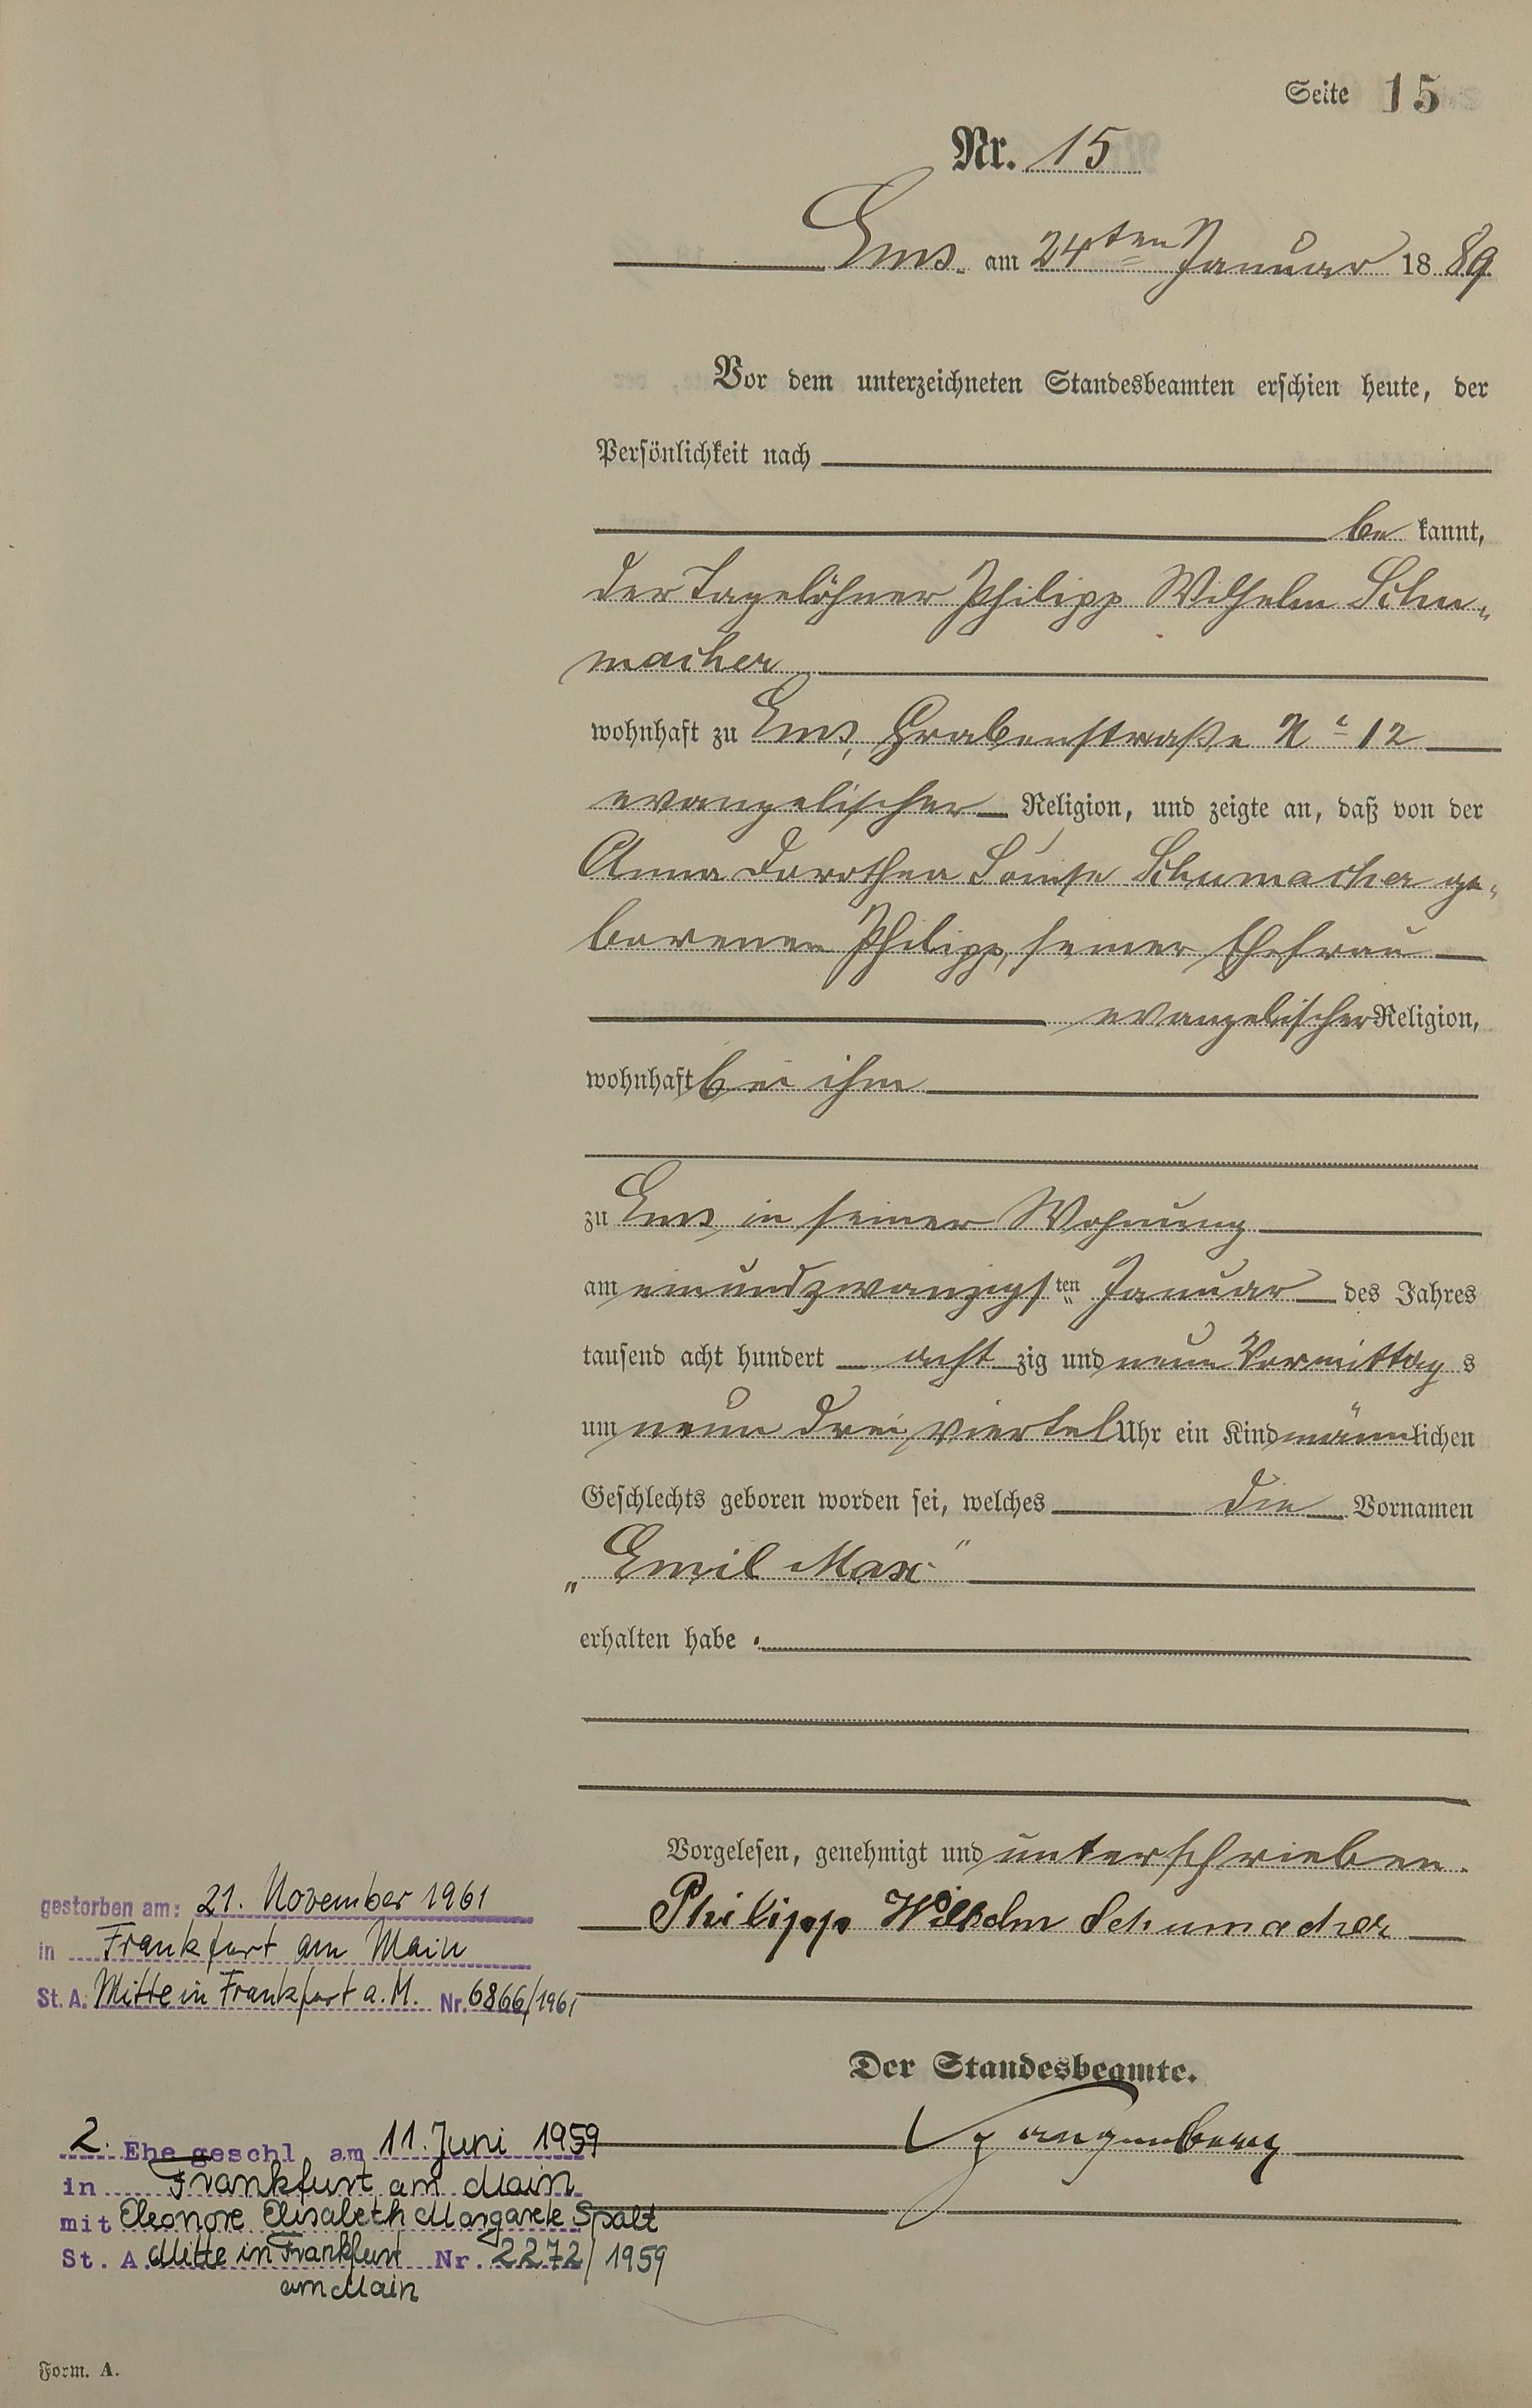 Seite 15
Nr. 15
Ems am 24ten Januar 1889
Vor dem unterzeichneten Standesbeamten erschien heute, der
Persönlichkeit nach
be kannt,
der Tagelöhner Philipp Wilhelm Schu-
macher
wohnhaft zu Ems, Grabenstraße No 12
evangelischer Religion, und zeigte an, daß von der
Anna Dorothea Louise Schumacher ge-
borenen Philipp, seiner Ehefrau
evangelischer Religion,
wohnhaft bei ihm
zu Ems in seiner Wohnung
am einundzwanzigsten Januar des Jahres
tausend acht hundert acht zig und neun Vormittag s
um neun drei viertel Uhr ein Kind männlichen
Geschlechts geboren worden sei, welches die Vornamen
„Emil Max"
erhalten habe.
Vorgelesen, genehmigt und unterschrieben.
Philipp Wilhelm Schumacher
Der Standesbeamte.
gestorben am: 21. November 1961
in Frankfurt am Main
St. A. Mitte in Frankfurt a. M. Nr. 6866/1961
2. Ehe geschl am 11. Juni 1959
in Frankfurt am Main
mit Eleonore Elisabeth Margarete Spalt
St. A. Mitte in Frankfurt Nr. 2272/1959
am Main
Form. A.